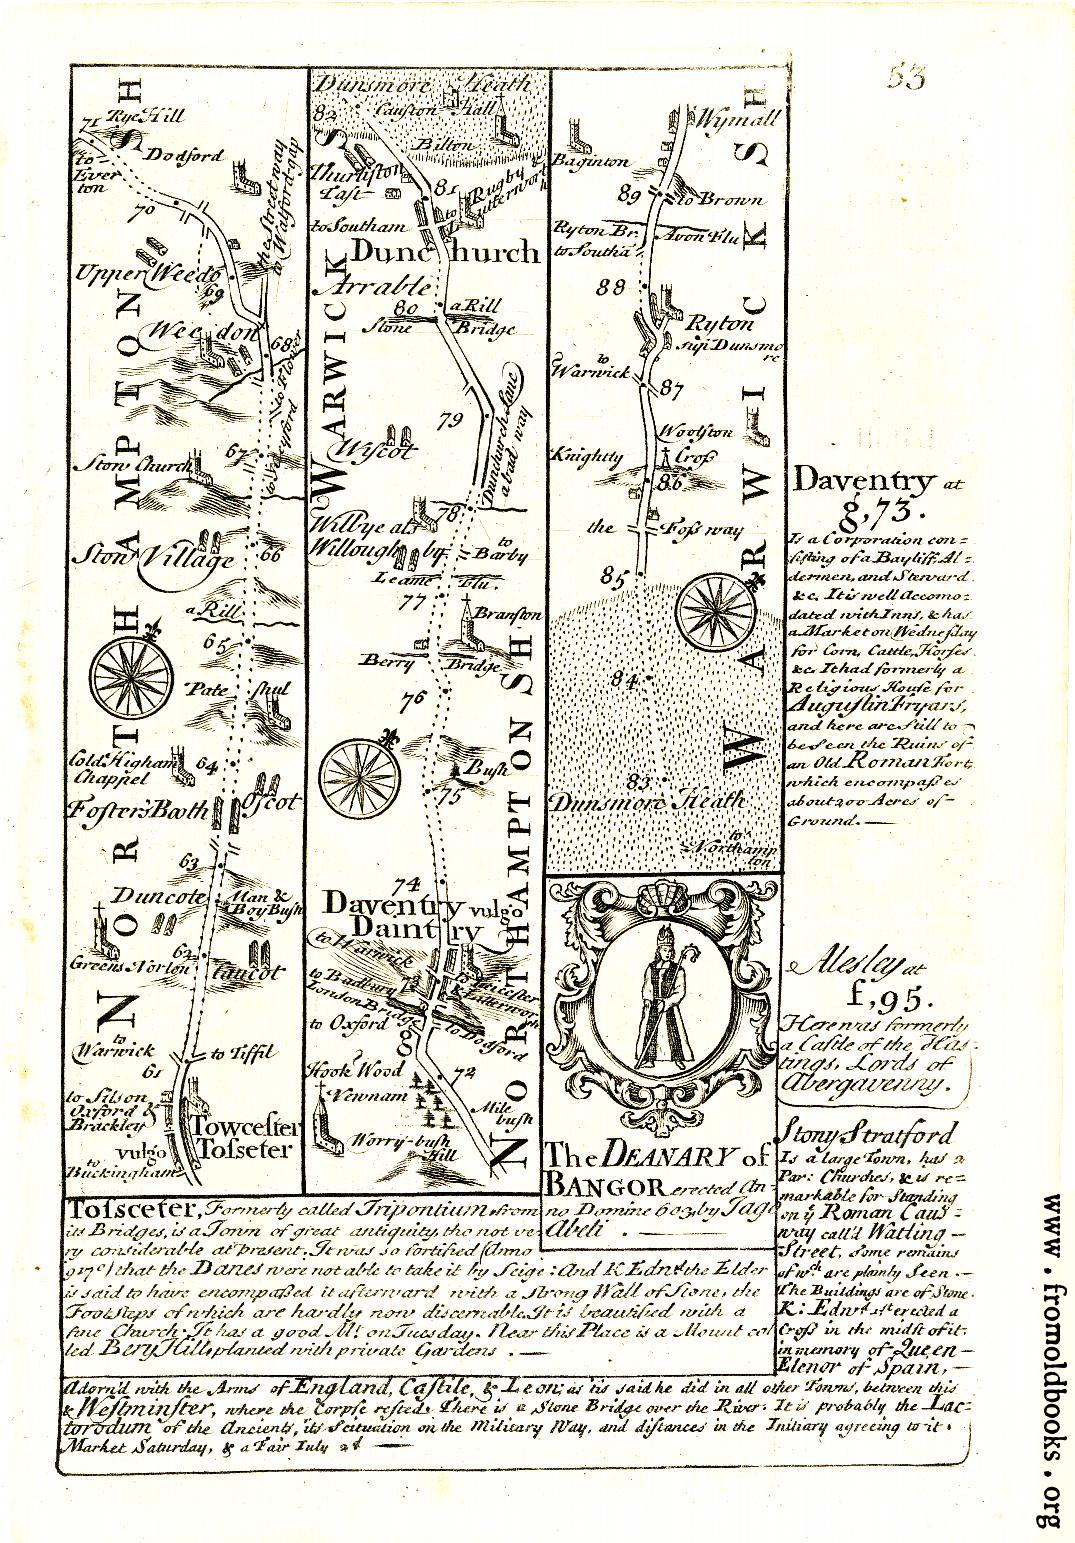 53
71 Rye Hill
to
Ever
ton
Dodford
70
the Street way
to Watford gap
Upper Weedo
69
Weedon
68
to Flower
Stow Church
67
Stow Village
66
a Rill
65
Pate shul
Cold Higham
Chappel
64
Foster's Booth
Oscot
63
Duncote
Man &
Boy Bush
Greens Norton
62
Caucot
to
Warwick
to Tiffil
61
to Silson
Oxford &
Brackley
Towcester
vulgo Tosseter
to
Buckingham
NORTHAMPTON SH
Dunsmore Heath
82
Causton Hall
Bilton
Thurlston
Tast
81
to Rugby &
Lutterworth
to Southam
Dunchurch
Arrable
80
a Rill
Stone Bridge
79
Dunchurch Lane
a bad way
Wiscot
78
Willbye als
Willoughby
to
Barby
Leame Flu.
77
Branston
Berry Bridge
76
Bush
75
74
Daventry vulgo
Daintry
to Warwick
to Leicester
& Litterworth
to Badbury
London Bridge
73
to Oxford
to Dodford
Hook Wood
72
Newnam
Mile
bush
Worry-bush
Hill
WARWICK S
NORTHAMPTON SH
Wymall
Baginton
89
to Brown
Ryton Br.
to Southa
Avon Flu
88
Ryton
sup Dunsmo
re
to
Warwick
87
Woolston
Knightly Cross
86
the Foss way
85
84
83
Dunsmore Heath
to
Northamp
ton
WARWICK SH
The DEANARY of
BANGOR erected An-
no Domine 603, by Jago
Abeti.
Daventry at
g,73.
Is a Corporation con=
sisting of a Bayliff, Al=
dermen, and Steward
&c. It is well Accomo=
dated with Inns, & has
a Market on Wednesday
for Corn, Cattle, Horses
&c. It had formerly a
Religious House for
Augustin Fryars,
and here are still to
be Seen the Ruins of
an Old Roman Fort
which encompasses
about 200 Acres of
Ground.
Alesley at
f,95.
Here was formerly
a Castle of the Has-
tings, Lords of
Abergavenny.
Stony Stratford
Is a large Town, has 2
Par: Churches, & is re=
markable for Standing
on ye Roman Caus=
way call'd Watling
Street. Some remains
of wch are plainly Seen.
The Buildings are of Stone.
K: Edwd 1st erected a
Cross in the midst of it
in memory of Queen
Elenor of Spain,
Tosseter, Formerly called Tripontium from
its Bridges, is a Town of great antiquity tho not ve-
ry considerable at present. It was so fortified (Anno
917) that the Danes were not able to take it by Seige: And K Edwd the Elder
is said to have encompassed it afterward with a Strong Wall of Stone, the
FootSteps of which are hardly now discernable. It is beautified with a
fine Church. It has a good Mt. on Tuesday. Near this Place is a Mount cal
led Bery Hill, planted with private Gardens.
Adorn'd with the Arms of England, Castile, & Leon; as 'tis said he did in all other Towns, between this
& Westminster, where the Corpse rested. There is a Stone Bridge over the River. It is probably the Lac-
torodum of the Ancients, its Scituation on the Military Way, and distances in the Initiary agreeing to it.
Market Saturday, & a Fair July 2d
www.fromoldbooks.org